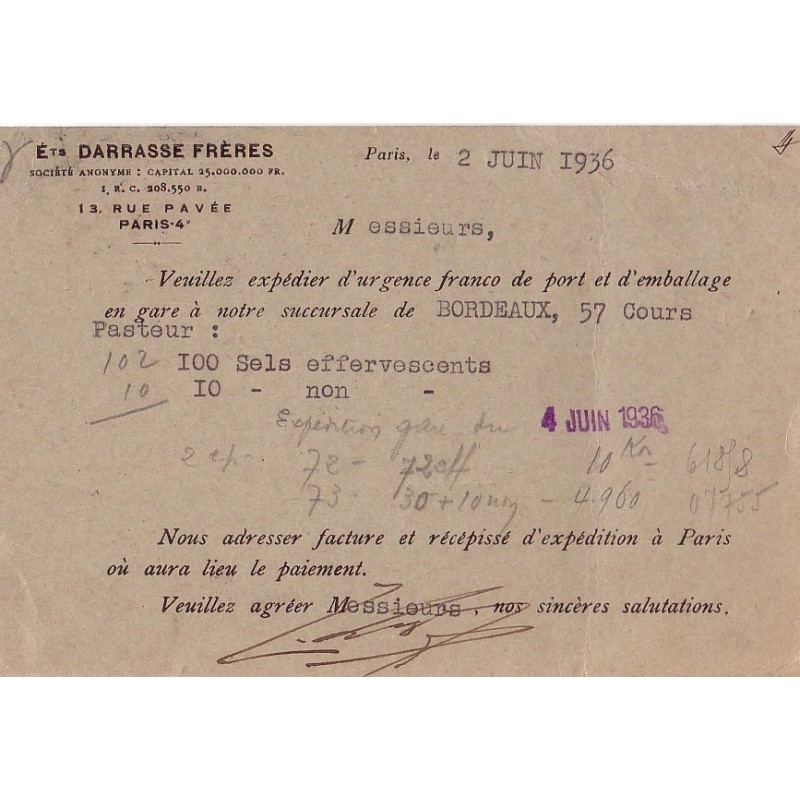 ÉTS DARRASSE FRÈRES
SOCIÉTÉ ANONYME : CAPITAL 25.000.000 FR.
R. C. 208.550 B.
13, RUE PAVÉE
PARIS-4e
Paris, le 2 JUIN I936
M essieurs,
Veuillez expédier d'urgence franco de port et d'emballage
en gare à notre succursale de BORDEAUX, 57 Cours
Pasteur :
102 I00 Sels effervescents
10 IO - non -
Expédition gare du 4 JUIN 1936
72 - 72 eff 10 K
73. 30 + 10 non - 4.960
Nous adresser facture et récépissé d'expédition à Paris
où aura lieu le paiement.
Veuillez agréer Messieurs, nos sincères salutations.